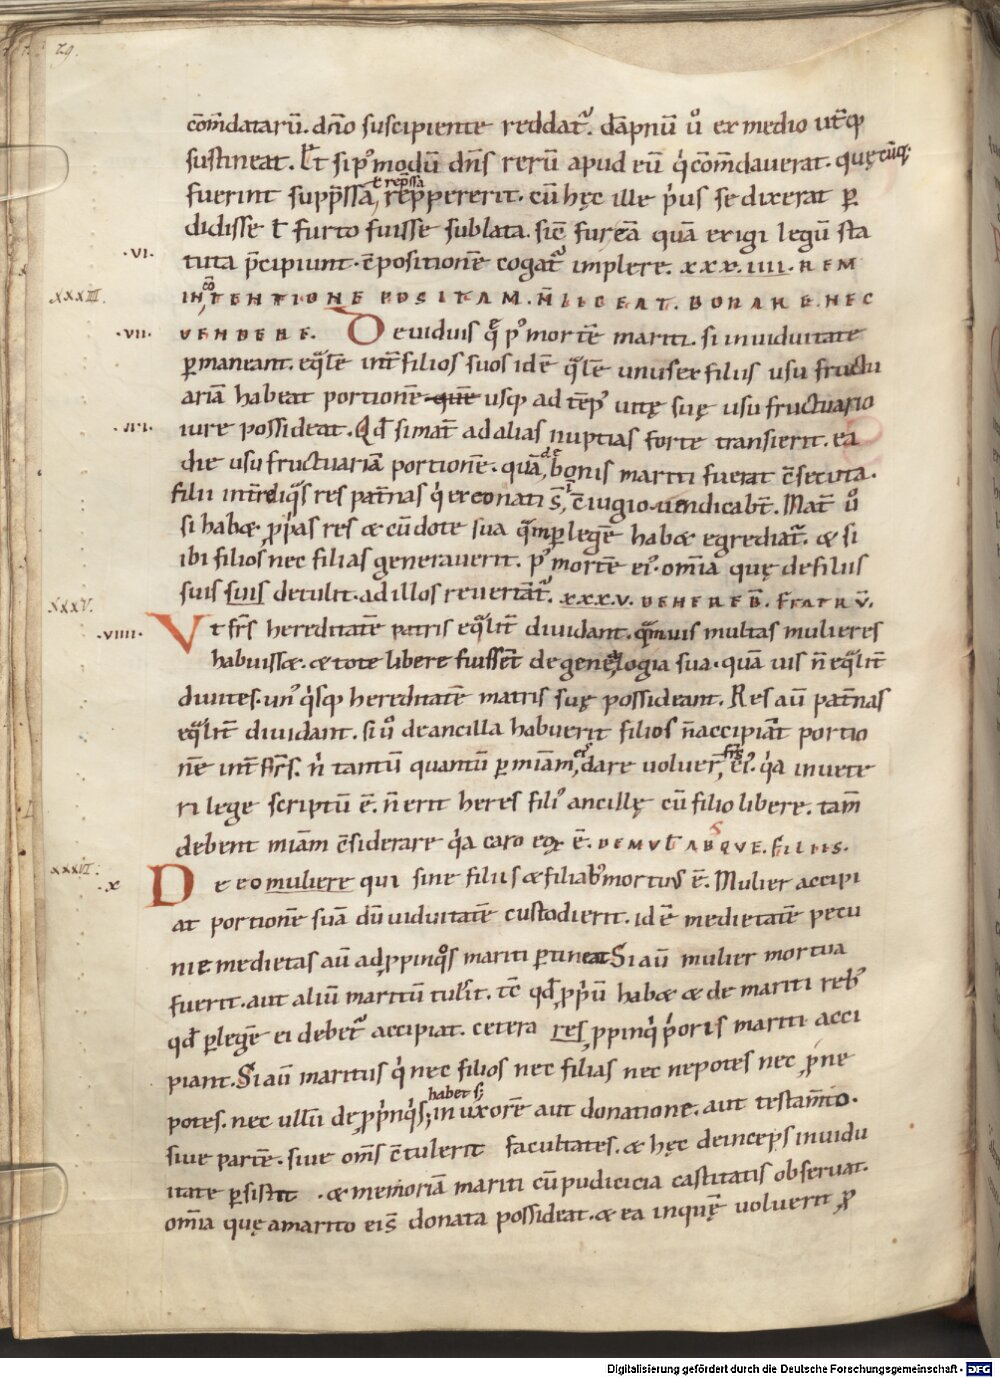 29.
cōmdatarū. dn̄o suscipiente reddat᷑. dāpnū u͛o ex medio ut͛q;
sustineat. Et si p᷒ modū dn̄s rerū apud eū q͛ cōmdauerat. quęcūq;
fuerint supp̄ssa, ł rep̄ssa reppererit. cū hęc ille p͛us se dixerat ꝑ
didisse ł furto fuisse sublata. sic̄ fureā quā exigi legū sta
·VI· tuta p̄cipiunt. c̄positionē cogat᷑ implere. xxx.iiii. REM
xxxiii. IN CŌTENTIONE POSITAM. N̄ LICEAT. DONARE. NEC
·VII· VENDERE. De uiduis q̨ p᷒ mortē mariti. si in uiduitate
ꝑmaneant. eq͛lē int͛ filios suos id ē q͛lē unus ex filiis usu fructu
ariā habeat portionē quē usq; ad tēp᷒ uitę suę usu fructuario
iure possideat. Qđ si mat͛ ad alias nuptias forte transierit. ea
die usu fructuariā portionē. quā, de bonis mariti fuerat c̄secuta.
filii int͛ reliq͛s res pat͛nas q͛ ex eo nati s̄, c̄iugio. uendicab̄t. Mat͛ u͛o
si habæ. ꝓp͛as res æ cū dote sua q̄m ꝑ legē habæ egrediat᷑. æ si
ibi filios nec filias generauerit. p᷒ mortē ei᷒. om̄ia quę de filiis
suis suis detulit. ad illos reuertāt᷑. xxx.v. DE HERED̄. FRATRV̄.
xxxv.
·VIIII· Vt fr̄s hereditatē patris eq͛lit͛ diuidant. q̄muis multas mulieres
habuissæ. æ tote libere fuissēt de genealogia sua. quā uis n̄ eq͛lit͛
diuites. un᷒ q͛sq; hereditatē matris suę possideant. Res aū pat͛nas
eq͛lit͛ diuidant. si u͛o de ancilla habuerit filios n̄ accipiāt portio
nē int͛ fr̄s. n͛ tantū quantū ꝑ miām, eis dare uoluer̄, fr̄s ei᷒. q͛a in uete
ri lege scriptū ē. n̄ erit heres fili᷒ ancillę cū filio libere. tam̄
debent miām c̄siderare q͛a caro eoꝝ ē. DE MVŁ ABSQVE. FILIIS.
xxxvi.
·X De eo muliere qui sine filiis æ filiab᷒ mortuus ē. Mulier accipi
at portionē suā dū uiduitatē custodierit. id ē medietatē pecu
nie medietas aū ad ꝓpinq͛s mariti ꝑtineat Si aū mulier mortua
fuerit. aut aliū maritū tul͛it. tc̄ qđ ꝓp͛ū habæ æ de mariti reb᷒
qđ ꝑ legē ei debet᷑ accipiat. cetera res ꝓpinq͛ p͛oris mariti acci
piant. Si aū maritus q͛ nec filios nec filias nec nepotes nec ꝓne
potes. nec ullū de ꝓp͛nq͛s; habet s; in uxorē aut donatione. aut testam̄to.
siue partē. siue om̄s c̄tulerit facultates. æ hęc deinceps in uidu
itate ꝑsistit . æ memoriā mariti cū pudicicia castitatis obseruat.
om̄ia quę a marito ei s̄ donata possideat. æ ea in quē uoluerit ꝓ
Digitalisierung gefördert durch die Deutsche Forschungsgemeinschaft - DFG